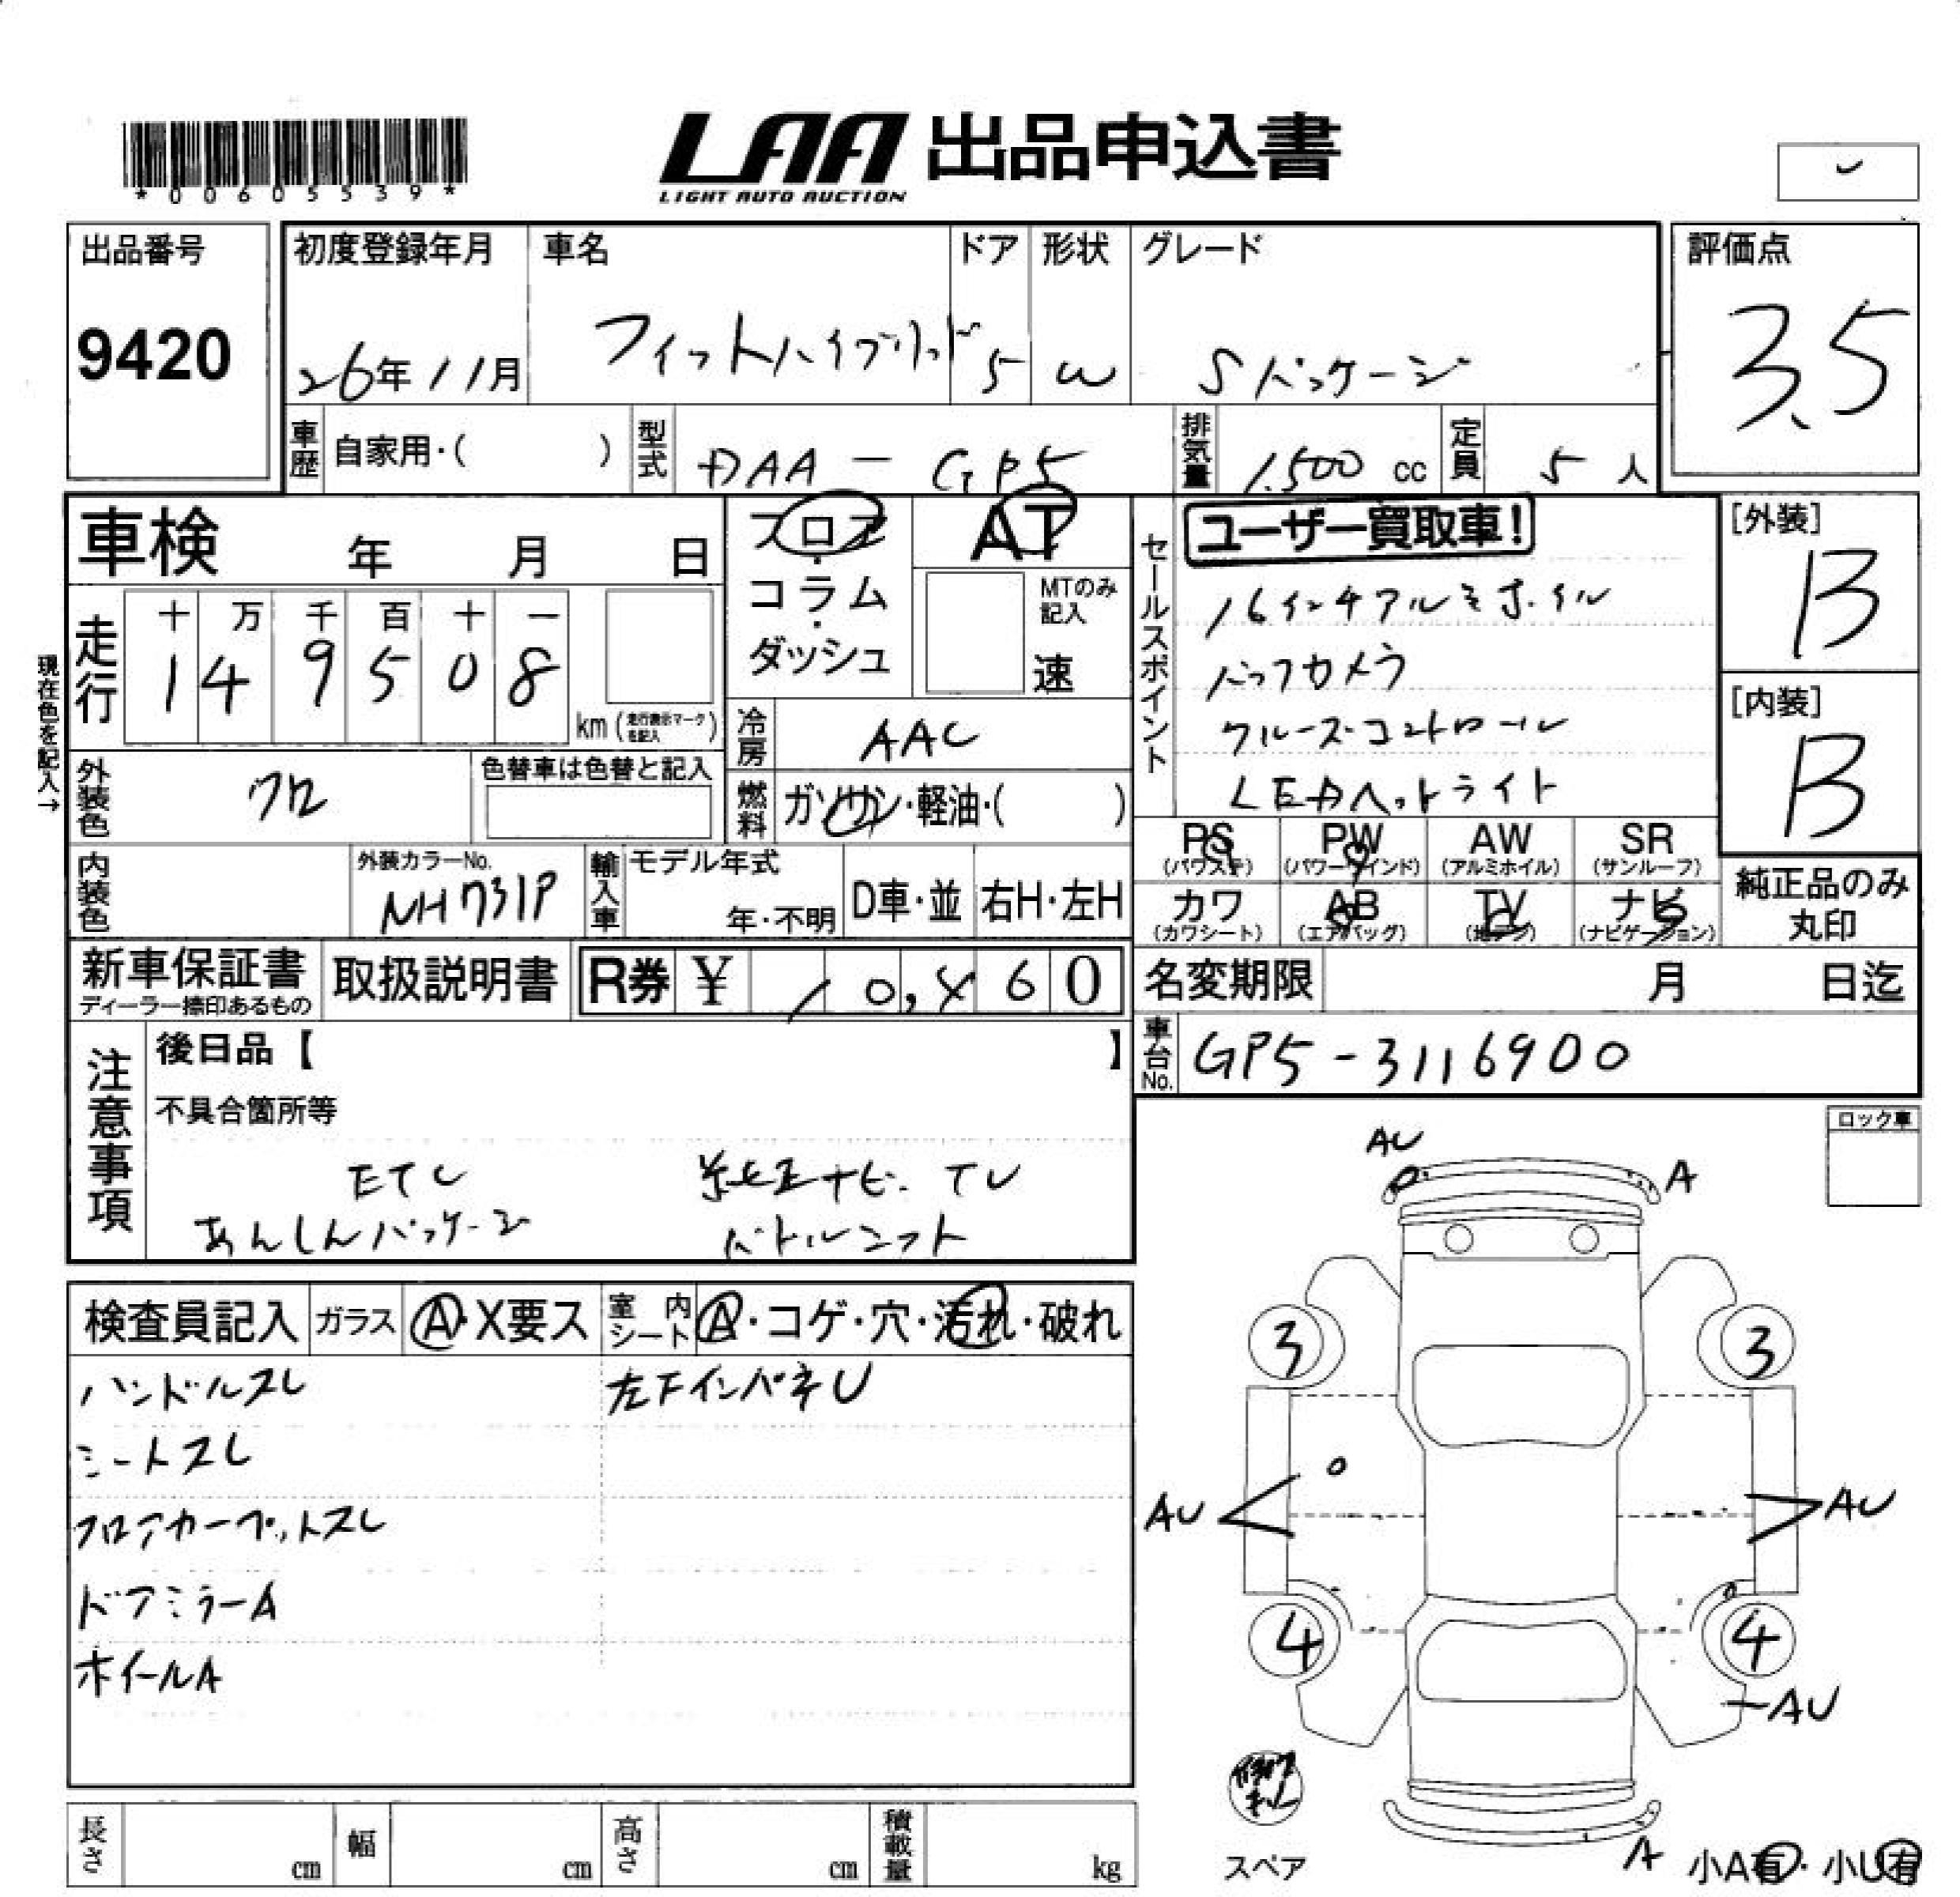 *00605539*
LAA 出品申込書
LIGHT AUTO AUCTION
出品番号
9420
初度登録年月
26年11月
車名
フィットハイブリッド
ドア
5
形状
W
グレード
Sパッケージ
評価点
3.5
車歴
自家用・( )
型式
DAA - GP5
排気量
1,500 cc
定員
5 人
車検 年 月 日
フロア・コラム・ダッシュ
AT
MTのみ記入
速
セールスポイント
ユーザー買取車!
16インチアルミホイル
バックカメラ
クルーズコントロール
LEDヘットライト
[外装]
B
[内装]
B
現在色を記入→
走行
十 万 千 百 十 一
1 4 9 5 0 8
km (走行表示マークを記入)
冷房
AAC
外装色
クロ
色替車は色替と記入
燃料
ガソリン・軽油・( )
PS (パワステ)
PW (パワーウインド)
AW (アルミホイル)
SR (サンルーフ)
カワ (カワシート)
AB (エアバッグ)
TV (地デジ)
ナビ (ナビゲーション)
純正品のみ丸印
内装色
外装カラーNo.
NH731P
輸入車
モデル年式
年・不明
D車・並
右H・左H
新車保証書
ディーラー捺印あるもの
取扱説明書
R券 ¥ 10,460
名変期限 月 日迄
注意事項
後日品【 】
不具合箇所等
ETC 純正ナビ. TV
あんしんパッケージ パドルシフト
車台No.
GP5-3116900
ロック車
検査員記入
ガラス
A・X要ス
室内シート
A・コゲ・穴・汚れ・破れ
ハンドルスレ 左Fインパネ U
シートスレ
フロアカーペットスレ
ドアミラーA
ホイールA
AU
A
3
3
AU
AU
4
4
AU
スペア
A
小A有・小U有
長さ cm
幅 cm
高さ cm
積載量 kg